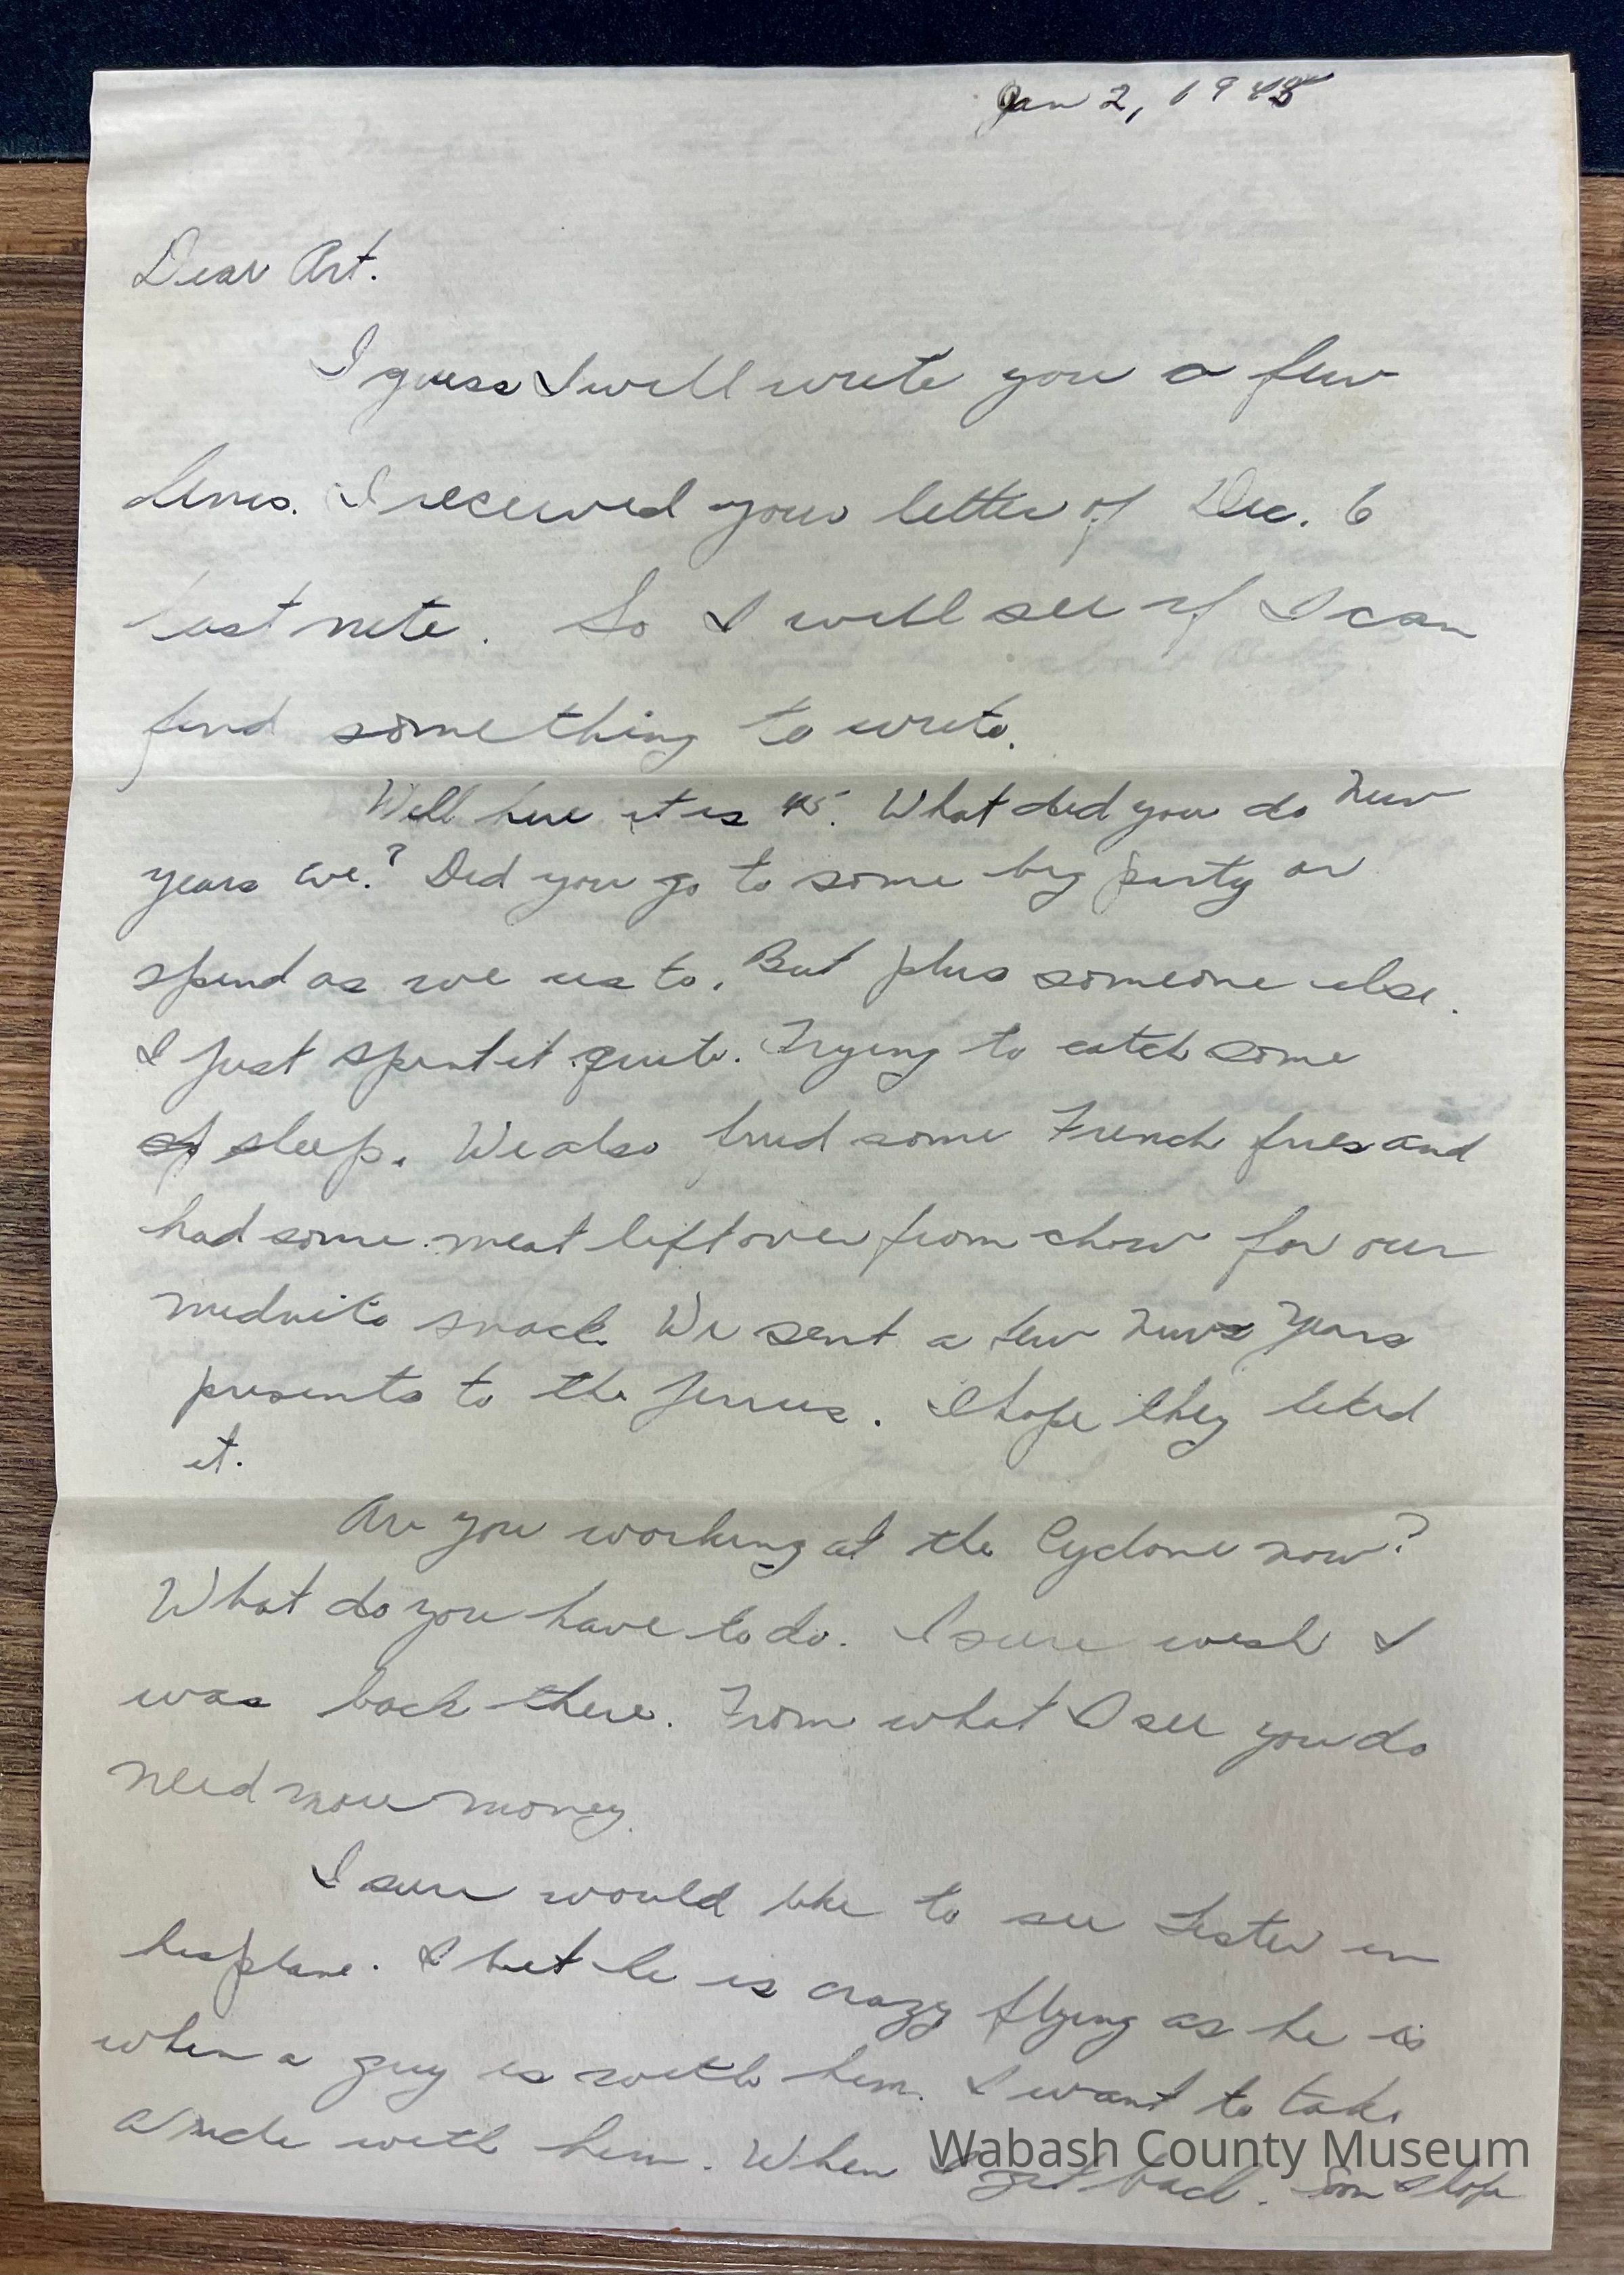 Jan 2, 1945
Dear Art.
I guess I will write you a few
lines. I received your letter of Dec. 6
last nite. So I will see if I can
find something to write.
Well here it is 45. What did you do New
years eve? Did you go to some big party or
spend as we us to. But plus someone else.
I just spent it quite. Trying to catch some
of sleep. We also fried some French fries and
had some meat left over from chow for our
midnite snack. We sent a few News Years
presents to the Jerries. I hope they liked
it.
Are you working at the Cyclone now?
What do you have to do. I sure wish I
was back there. From what I see you do
need more money.
I sure would like to see Lester in
his plane. I bet he is crazy flying as he is
when a guy is with him. I want to take
a ride with him. When I get back. Soon I hope
Wabash County Museum